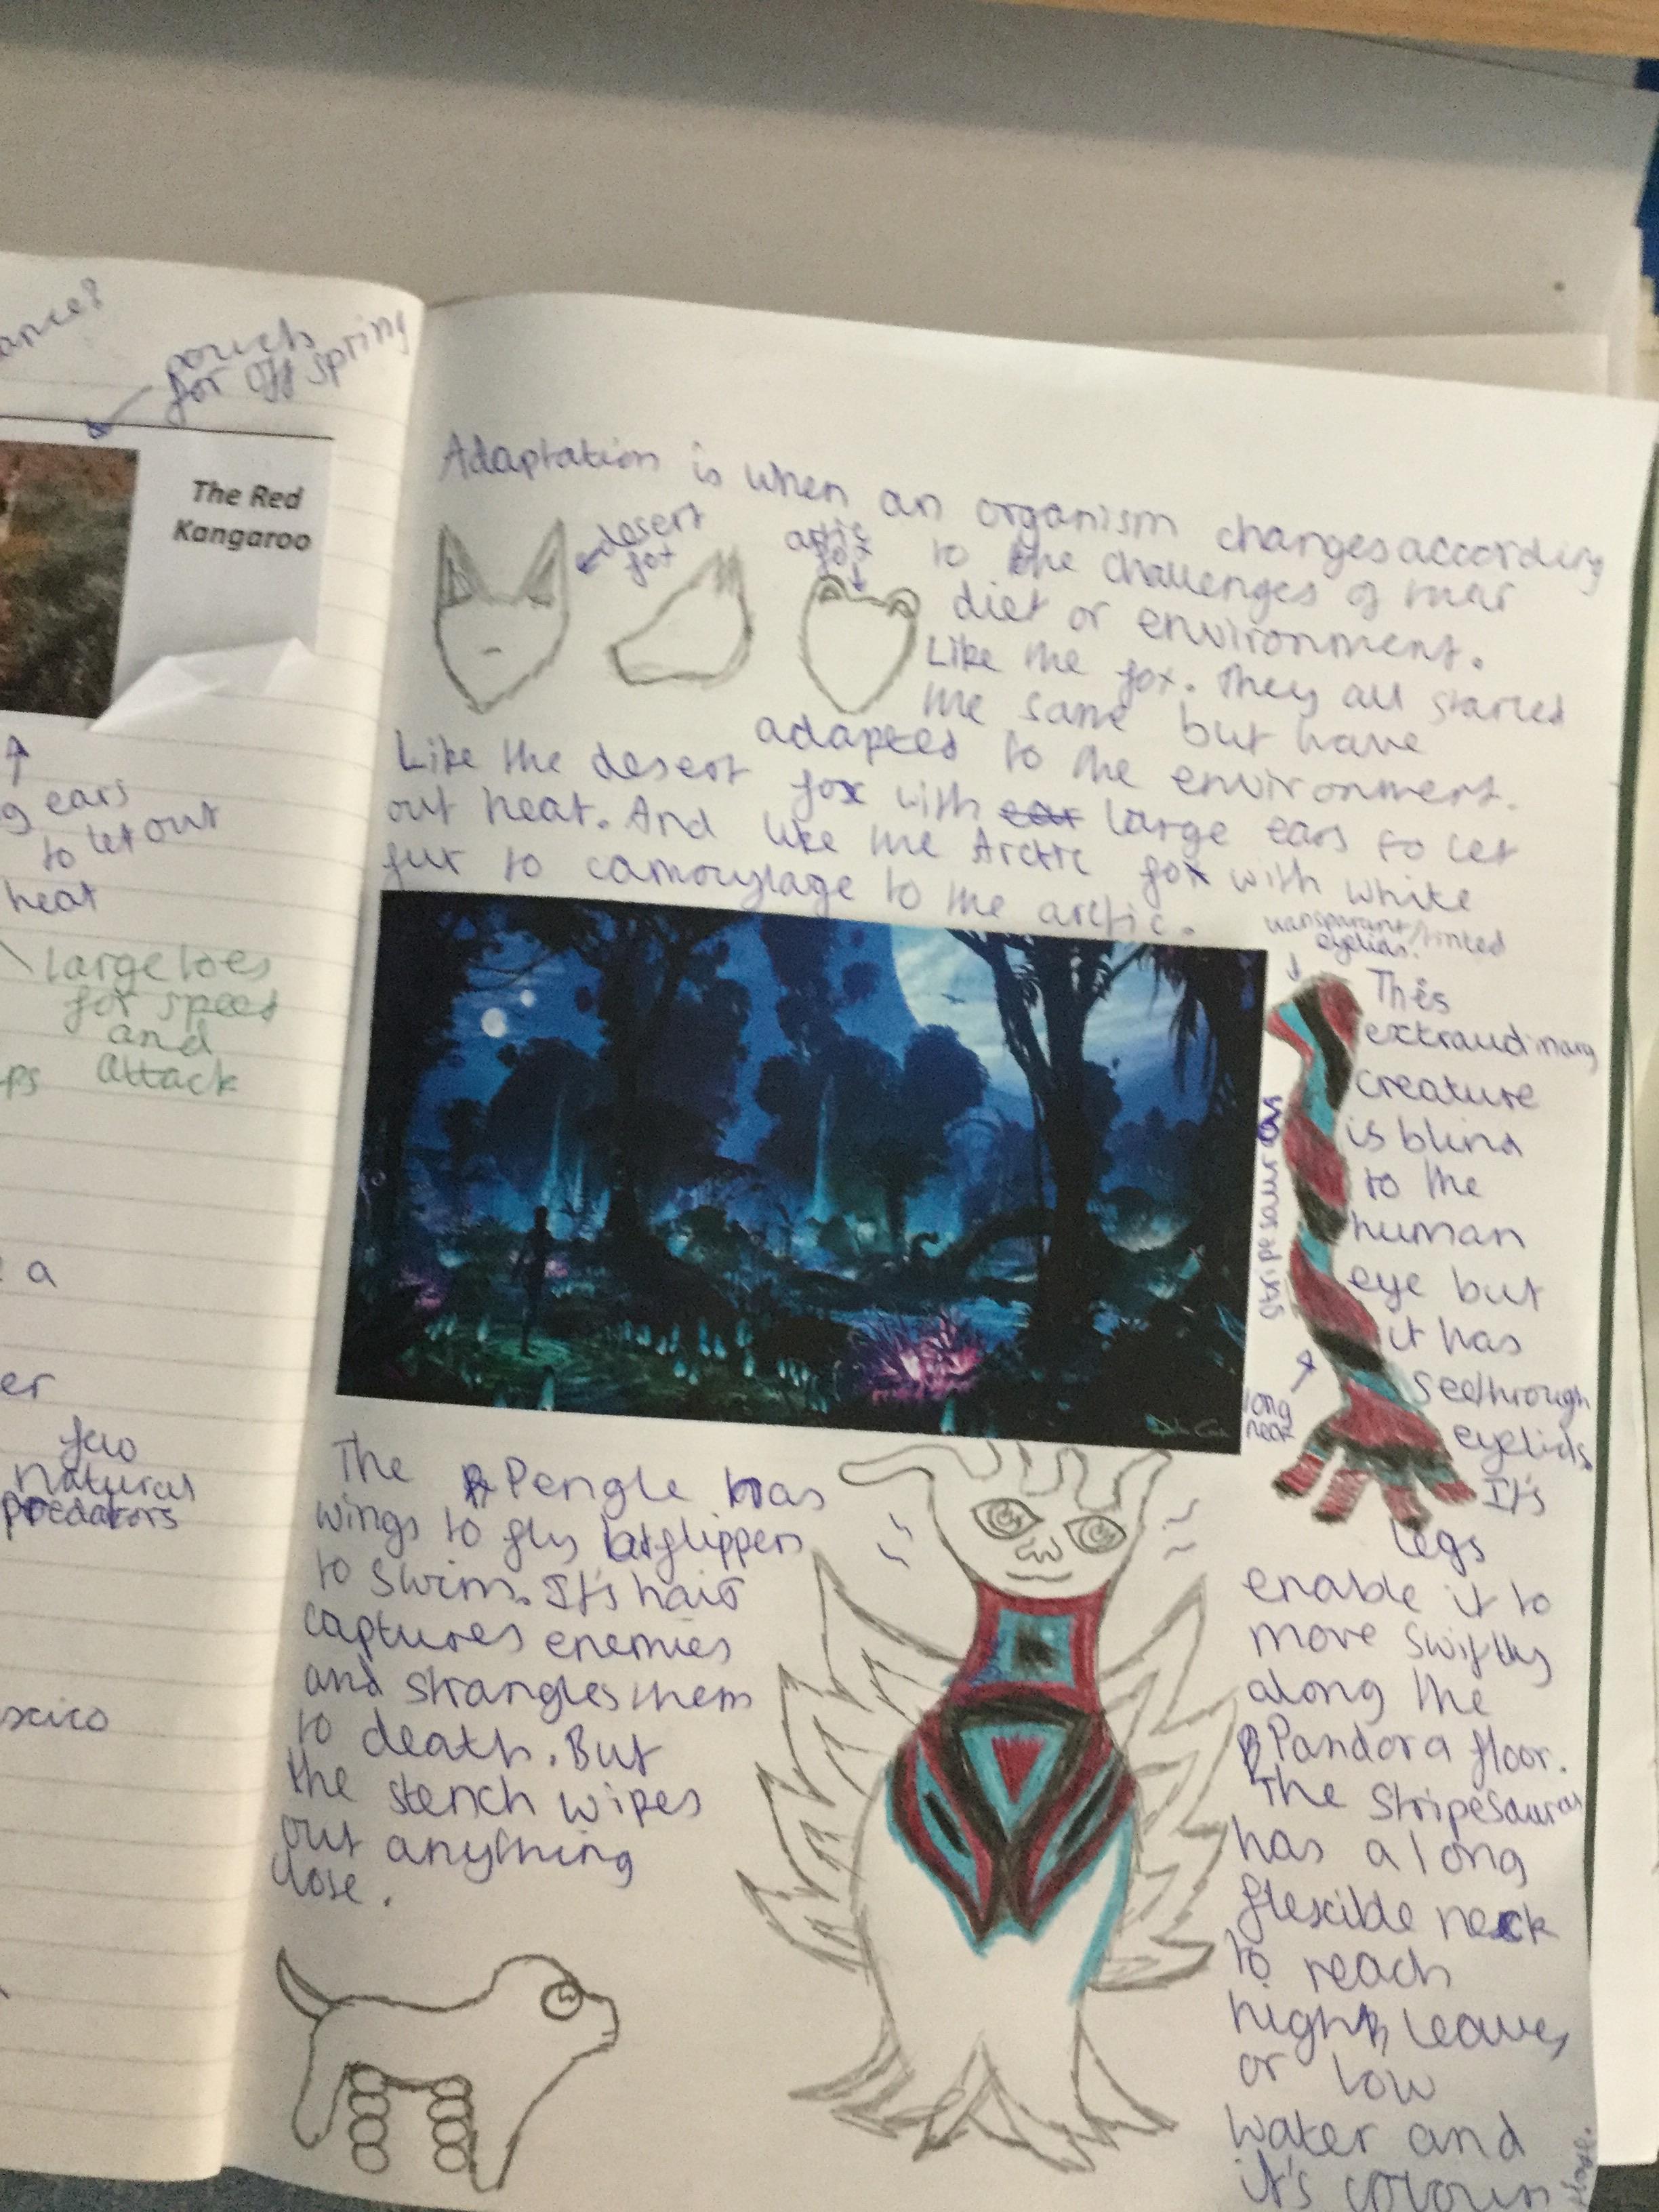 pouch
for off spring
The Red
Kangaroo
ears
to let out
heat
large toes
for speed
and
attack
a
er
few
natural
predators
xico
Adaptation is when an organism changes according
to the challenges of their
diet or environment.
Like the fox. They all started
the same but have
adapted to the environment.
desert
fox
artic
fox
Like the desert fox with ear large ears to let
out heat. And like the Arctic fox with white
fur to camouflage to the arctic.
transparent/tinted
eyelids.
stripesaurus
long
neck
This
extraudinary
creature
is blind
to the
human
eye but
it has
seethrough
eyelids.
It's
legs
enable it to
move swiftly
along the
Pandora floor.
The Stripesaurus
has a long
flexible neck
to reach
high leaves
or low
water and
it's colours
The Pengle has
wings to fly flippers
to swim. It's hair
captures enemies
and strangles them
to death. But
the stench wipes
out anything
close.